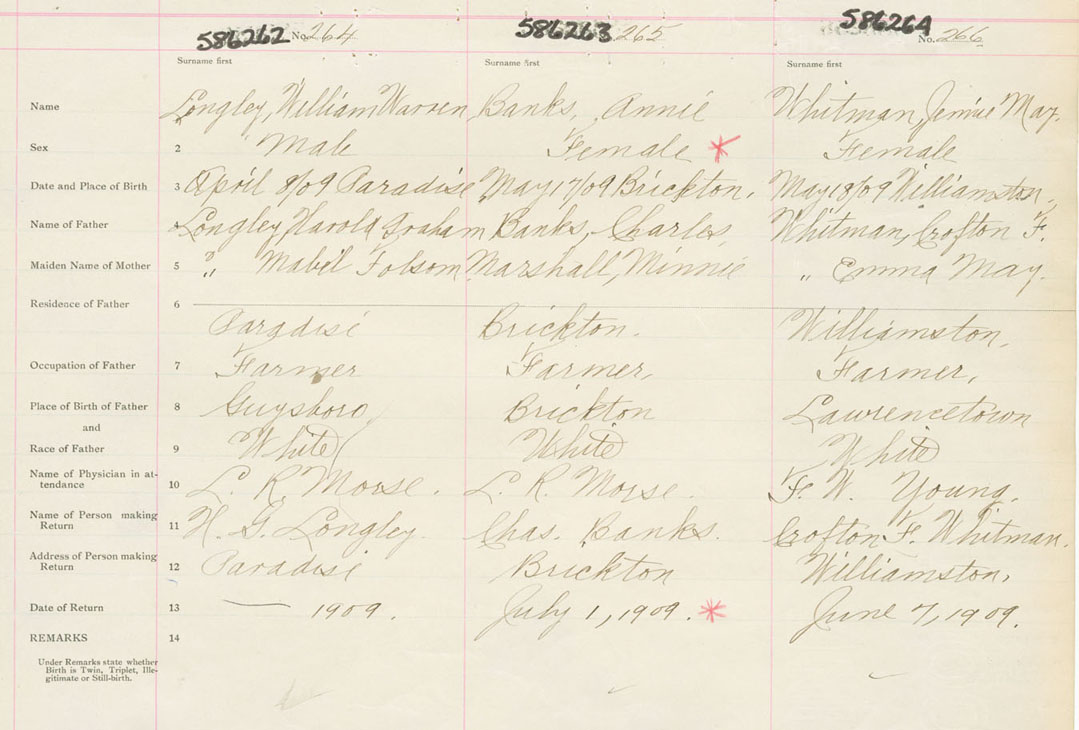 586262 No. 264 586263 265 586264 No. 266
Surname first Surname first Surname first
Name Longley, William Warren Banks, Annie Whitman, Jennie May.
Sex 2 Male Female * Female
Date and Place of Birth 3 April 8/09 Paradise May 17/09 Brickton. May 18/09 Williamston.
Name of Father 4 Longley, Harold Graham Banks, Charles, Whitman, Crofton F.
Maiden Name of Mother 5 " Mabel Folsom Marshall, Minnie " Emma May.
Residence of Father 6
Paradise Brickton. Williamston,
Occupation of Father 7 Farmer Farmer, Farmer,
Place of Birth of Father 8 Guysboro Brickton Lawrencetown
and
Race of Father 9 White White White
Name of Physician in at-
tendance 10 L. R. Morse. L. R. Morse. F. W. Young.
Name of Person making
Return 11 H. G. Longley Chas. Banks. Crofton F. Whitman.
Address of Person making
Return 12 Paradise Brickton Williamston,
Date of Return 13 — 1909. July 1, 1909. * June 7, 1909.
REMARKS 14
Under Remarks state whether
Birth is Twin, Triplet, Ille-
gitimate or Still-birth.